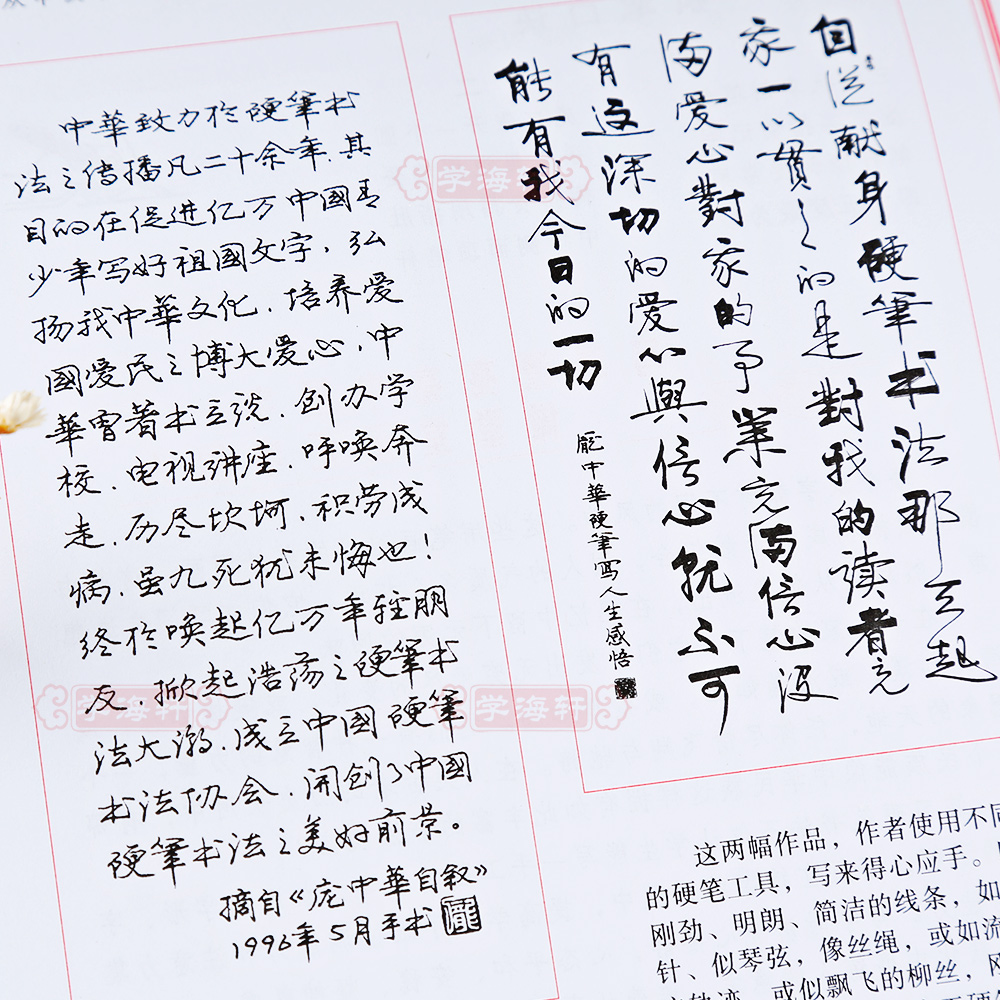 自從献身硬筆书法那天起
我一以貫之的是對我的读者充
满爱心對我的事業充满信心没
有这深切的爱心與信心就不可
能有我今日的一切
龐中華硬筆寫人生感悟
中華致力於硬筆书
法之传播凡二十余年,其
目的在促进亿万中國青
少年写好祖國文字,弘
扬我中華文化,培养爱
國爱民之博大爱心,中
華曾著书立说,创办学
校,电视讲座,呼唤奔
走,历尽坎坷,积劳成
病,虽九死犹未悔也!
终於唤起亿万年轻朋
友,掀起浩荡之硬筆书
法大潮,成立中國硬筆
书法协会,開创了中國
硬筆书法之美好前景。
摘自《庞中華自叙》
1996年5月手书
这两幅作品,作者使用不同
的硬笔工具,写来得心应手。
刚劲、明朗、简洁的线条,如
针、似琴弦,像丝绳,或如流
轨迹,或似飘飞的柳丝,
学海轩
学海轩
学海轩